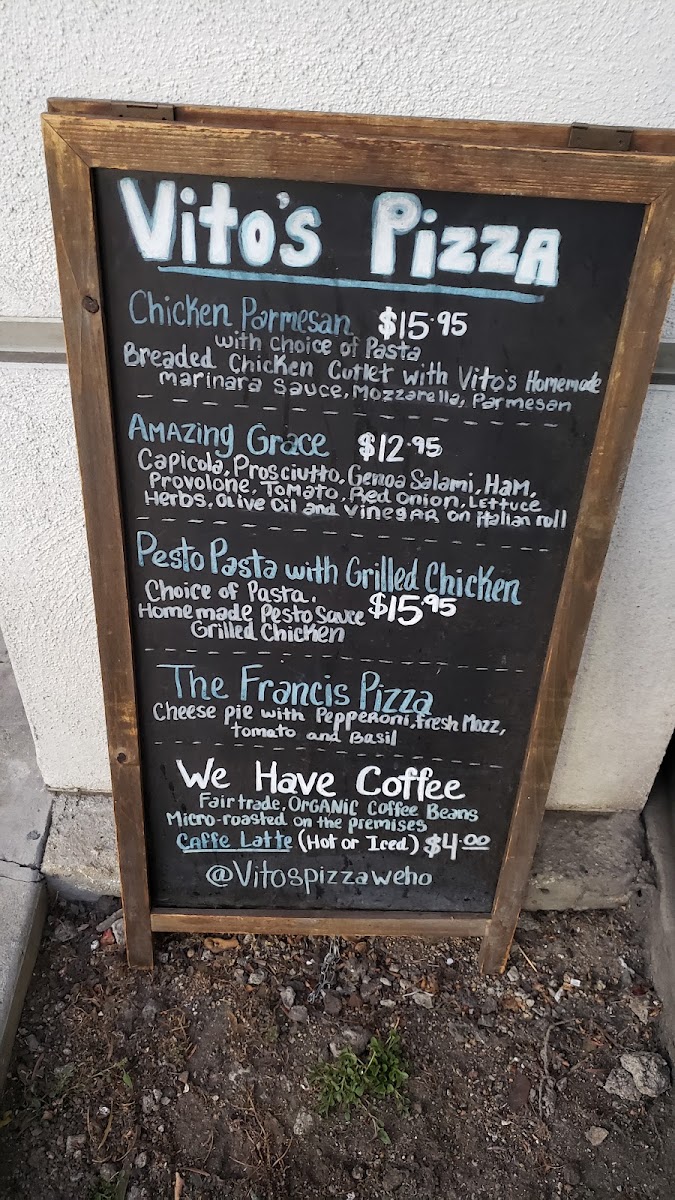 Vito's Pizza
Chicken Parmesan $15.95
with choice of Pasta
Breaded Chicken Cutlet with Vito's Homemade
marinara sauce, Mozzarella, Parmesan
Amazing Grace $12.95
Capicola, Prosciutto, Genoa Salami, Ham,
Provolone, Tomato, Red onion, Lettuce
Herbs, Olive Oil and Vinegar on italian roll
Pesto Pasta with Grilled Chicken
Choice of Pasta, $15.95
Homemade Pesto Sauce
Grilled Chicken
The Francis Pizza
Cheese pie with Pepperoni, fresh Mozz,
tomato and Basil
We Have Coffee
Fair trade, Organic Coffee Beans
Micro-roasted on the premises
Caffe Latte (Hot or Iced) $4.00
@Vitospizzaweho